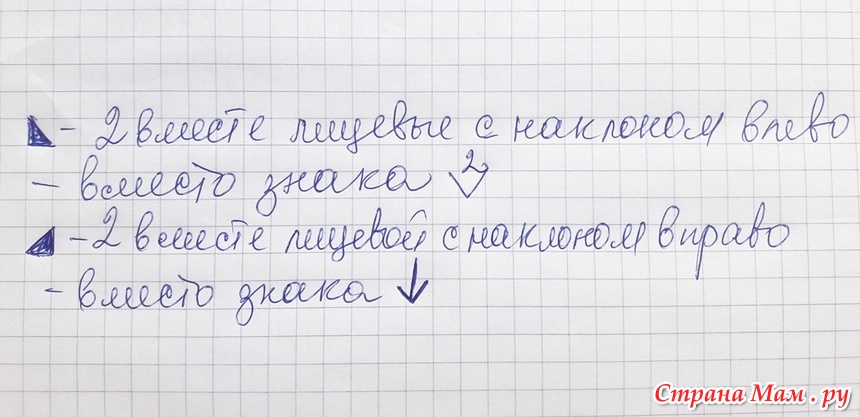 ◣ - 2 вместе лицевые с наклоном влево
- вместо знака 2 ▽
◢ - 2 вместе лицевой с наклоном вправо
- вместо знака ↓
Страна Мам . ру